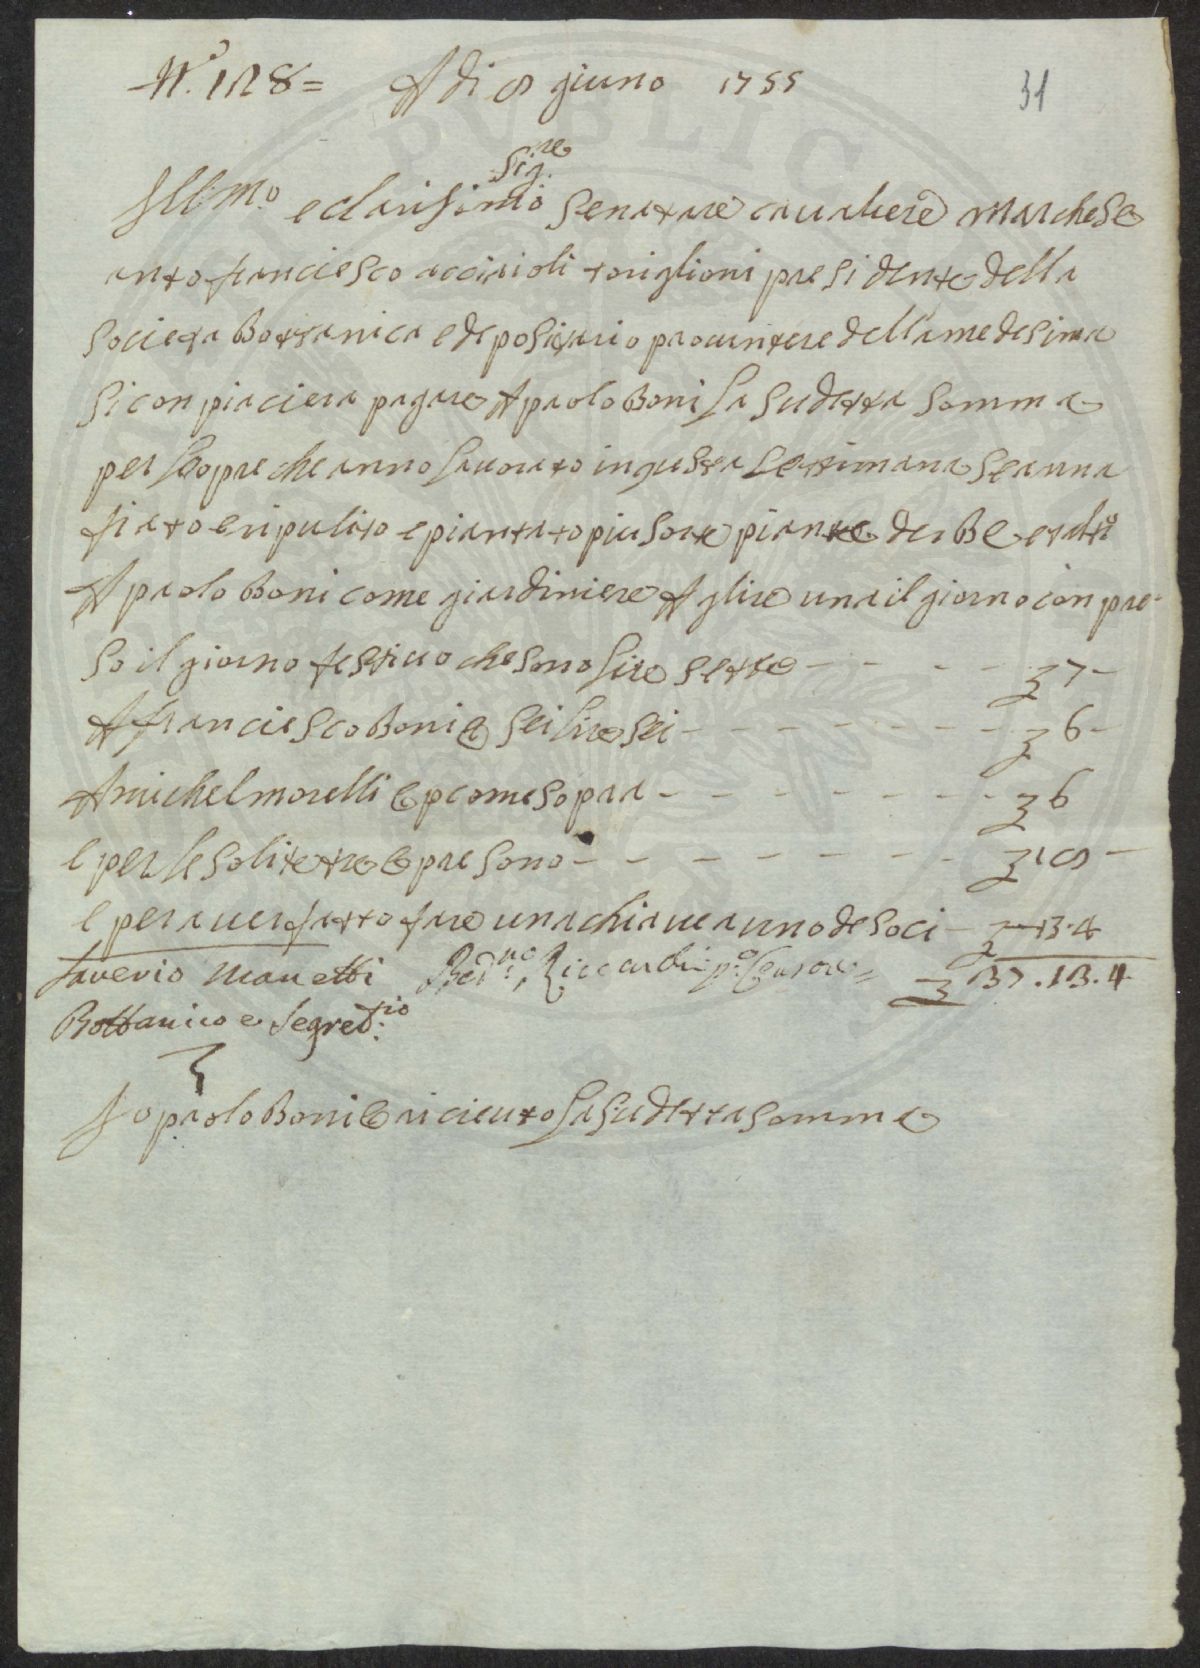 N.° 128 = A di 8 giuno 1755
31
Sig.re
Ill:mo e clarisimo Senatore caualiere marchese
anto franciesco acciaioli toriglioni presidente della
Societa Bottanica e depositario procuratore della medesima
Si conpiaciera pagare A paolo Boni la sudetta somma
per lopre che anno lauorato in questa settimana Seanna
fiato e ripulito e piantato piu sorte piante derBe et altro
A paolo Boni come giardiniere A lire una il giorno conpre-
so il giorno festiuo che sono lire sette - - - - 7 -
A franciesco Boni 6 sei lire sei - - - - - - - 6 -
A michel morelli 6 p come sopra - - - - - - - 6
e per le solite tre opre sono - - - - - - - 18 -
e per auer fatto fare una chiaue a uno de soci - - 13.4
Saverio Manetti Ber.no Riccardi p.o Censore = 37.13.4
Bottanico e Segret.rio
PUBLIC
Io paolo Boni 6 riceuto la sudetta somma